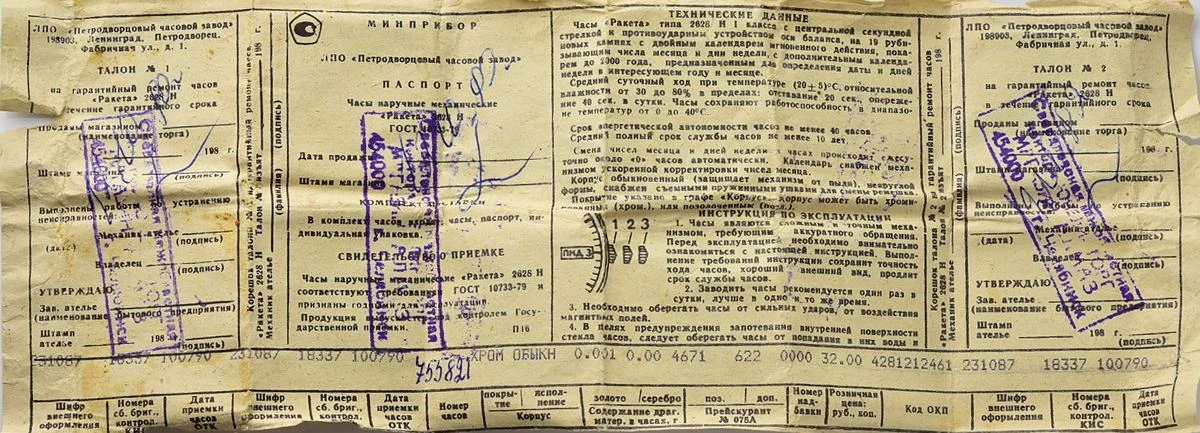 ЛПО «Петродворцовый часовой завод»
198903, Ленинград, Петродворец,
Фабричная ул., д. 1.
ТАЛОН № 1
на гарантийный ремонт часов
«Ракета» 2628 Н
в течение гарантийного срока
Проданы магазином
(наименование торга)
198 г.
Штамп
(подпись)
Выполнены работы по устранению
неисправностей:
(дата)
Механик ателье
(подпись)
Владелец
(подпись)
УТВЕРЖДАЮ:
Зав. ателье
(наименование бытового предприятия)
Штамп
ателье
198 г.
(подпись)
Корешок талона № 1 на гарантийный ремонт часов
«Ракета» 2628 Н Талон № изъят 198 г.
Механик ателье (фамилия) (подпись)
МИНПРИБОР
ЛПО «Петродворцовый часовой завод»
ПАСПОРТ
Часы наручные механические
«Ракета» 2628 Н
ГОСТ 10733-79
Дата продажи
Штамп магазина
КОМПЛЕКТ ПОСТАВКИ
В комплект часов входят: часы, паспорт, ин-
дивидуальная упаковка.
СВИДЕТЕЛЬСТВО О ПРИЕМКЕ
Часы наручные механические «Ракета» 2628 Н
соответствуют требованиям ГОСТ 10733-79 и
признаны годными для эксплуатации.
Продукция выпускается под контролем Госу-
дарственной приемки.
П16
ТЕХНИЧЕСКИЕ ДАННЫЕ
Часы «Ракета» типа 2628 Н I класса с центральной секундной
стрелкой и противоударным устройством оси баланса, на 19 руби-
новых камнях с двойным календарем мгновенного действия, пока-
зывающим числа месяца и дни недели, с дополнительным календа-
рем до 2000 года, предназначенным для определения даты и дней
недели в интересующем году и месяце.
Средний суточный ход при температуре (20±5)°С, относительной
влажности от 30 до 80% в пределах: отставание 20 сек, опереже-
ние 40 сек. в сутки. Часы сохраняют работоспособность в диапазо-
не температур от 0 до 40°С.
Срок энергетической автономности часов не менее 40 часов.
Средний полный срок службы часов не менее 10 лет.
Смена чисел месяца и дней недели в часах происходит ежесу-
точно около «0» часов автоматически. Календарь снабжен меха-
низмом ускоренной корректировки чисел месяца.
Корпус обыкновенный (защищает механизм от пыли), некруглой
формы, снабжен съемными пружинными ушками для смены ремешка.
Покрытие указано в графе «Корпус». Корпус может быть хроми-
рованный (хром.), или позолоченный (позол.).
1 2 3
ПНД 3
ИНСТРУКЦИЯ ПО ЭКСПЛУАТАЦИИ
1. Часы являются сложным и точным меха-
низмом, требующим аккуратного обращения.
Перед эксплуатацией необходимо внимательно
ознакомиться с настоящей инструкцией. Выпол-
нение требований инструкции сохранит точность
хода часов, хороший внешний вид, продлит
срок службы часов.
2. Заводить часы рекомендуется один раз в
сутки, лучше в одно и то же время.
3. Необходимо оберегать часы от сильных ударов, от воздействия
магнитных полей.
4. В целях предупреждения запотевания внутренней поверхности
стекла часов, следует оберегать часы от попадания в них воды и
Корешок талона № на гарантийный ремонт часов
«Ракета» 2628 Н Талон № 2 изъят 198 г.
Механик ателье (фамилия) (подпись)
ЛПО «Петродворцовый часовой завод»
198903, Ленинград, Петродворец,
Фабричная ул., д. 1.
ТАЛОН № 2
на гарантийный ремонт часов
«Ракета» 2628 Н
в течение гарантийного срока
Проданы магазином
(наименование торга)
198 г.
Штамп
(подпись)
Выполнены работы по устранению
неисправностей:
(дата)
Механик ателье
(подпись)
Владелец
(подпись)
УТВЕРЖДАЮ:
Зав. ателье
(наименование бытового предприятия)
Штамп
ателье
198 г.
(подпись)
454000
454000
454000
231087 18337 100790 231087 18337 100790 ХРОМ ОБЫКН 0.001 0.00 4671 622 0000 32.00 4281212461 231087 18337 100790
755821
Шифр внешнего оформления
Номера сб. бриг., контрол. КИС
Дата приемки часов ОТК
Шифр внешнего оформления
Номера сб. бриг., контрол. КИС
Дата приемки часов ОТК
Номер часов
покры-тие
испол-нение
Корпус
золото
серебро
Содержание драг. матер. в часах, г
поз.
доп.
Прейскурант № 075А
Номер над-бавки
Розничная цена: руб., коп.
Код ОКП
Шифр внешнего оформления
Номера сб. бриг., контрол. КИС
Дата приемки часов ОТК